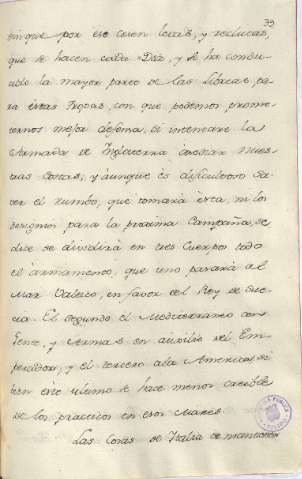 39
sin que por eso cesen levas, y reclutas,
que se hacen cada Dia, y se ha conduci
cido la mayor parte de las Libreas pa
ra estas Tropas, con que podemos prome
ternos mejor defensa, si intentare la
Armada de Inglaterra invadir nues
tras Costas, y aunque es dificultoso sa
ver el rumbo, que tomará esta, ni los
designios para la proxima Campaña, se
dice se dividirá en tres Cuerpos todo
el armamento, que uno pasará al
Mar Valtico, en favor del Rey de Sue
cia. El segundo el Mediterraneo con
Gente, y Armas en auxilio del Em
perador, y el tercero a la America, si
bien este ultimo se hace menos creible
de los practicos en esos Mares.
Las Cosas de Italia se mantienen